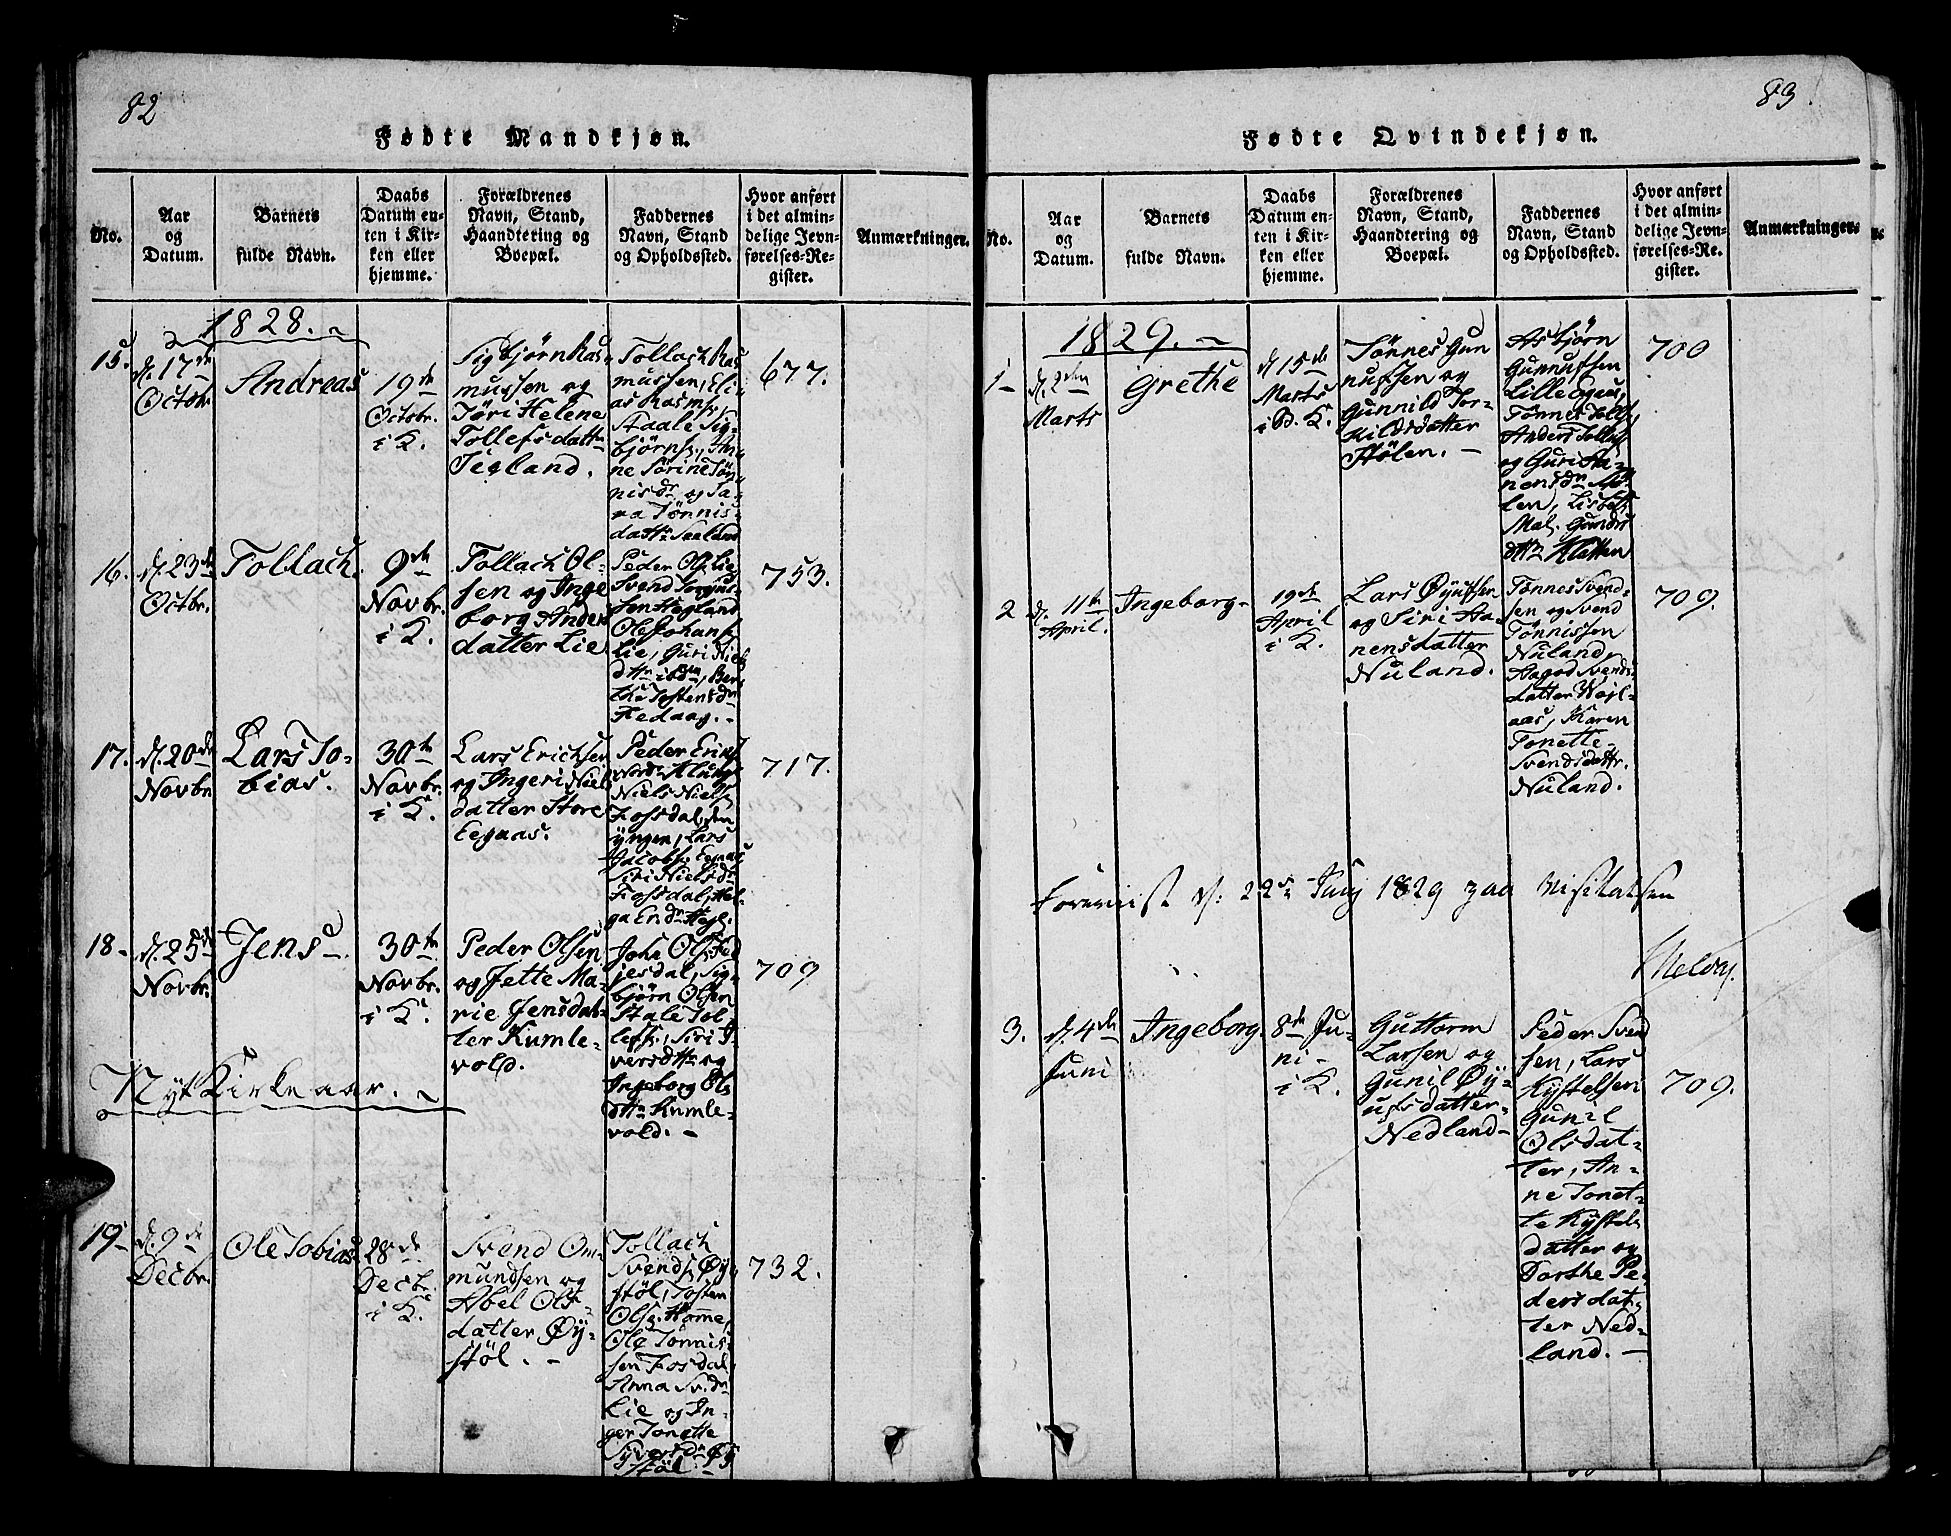 82
Fødte Mandkjøn.
No.
Aar
og
Datum.
Barnets
fulde Navn.
Daabs
Datum en-
ten i Kir-
ken eller
hjemme.
Forældrenes
Navn, Stand,
Haandtering og
Boepæl.
Faddernes
Navn, Stand
og Opholdssted.
Hvor anført
i det almin-
delige Jevn-
førelses-Re-
gister.
Anmærkninger.
1828.
15.
d. 17de
Octobr.
Andreas
19de
Octobr.
i K.
Sigbjørn Ras-
mussen og
Jøri Helene
Tollefsdattr
Jegland.
Tollach Ras
mussen, Eli-
as Rasms,
Staale Sig-
bjørns., An-
ne Sørine Tøn
nisdr og Sa-
ra Tønnis-
dattr Seeland
677.
16.
d. 23de
Octbr.
Tollach.
9de
Novbr.
i K.
Tollach Ol-
sen og Inge
borg Anders
datter Lie
Peder Ols. Lie,
Svend Torgus-
sen Hegland
Ole Johans.
Lie, Guri Niels
dttr ibdm, Ber
the Tostensdr
Fedaag.-
753.
17.
d. 20de
Novbr.
Lars To-
bias.
30te
Novbr.
i K.
Lars Erichsen
og Ingeri Niels
datter Store
Eegaas.
Peder Erichs.
Niels Niels.
Fossdal, den
yngen, Lars
Jacobs. Eegaas
Siri Nielsdr
Fossdal, Hel-
ga
717.
18-
d. 25de
Novbr.
Jens
30te
Novbr.
i K.
Peder Olsen
og Jette Ma-
rie Jensdat-
ter Kumle-
vold.
Johs Ols. Fed
jesdal, Sig-
bjørn Olsen
Stale Tol-
lefs., Siri I-
versdttr og
Ingeborg Ols
dttr Kumle-
vold. -
709
Nyt Kirkeaar.
19-
d. 9de
Decbr.
Ole Tobias
28de
Decbr.
i K.
Svend Om-
mundsen og
Abel Ols-
datter Øy-
støl. -
Tollach
Svends. Øy-
støl, Tosten
Ols. Homme,
Ole Tønnis-
sen Fosdal,
Anna Sv.dr
Lie og In-
ger Tonette
Syversdr Øy
støl -
732.
83.
Fødte Qvindekjøn.
No.
Aar
og
Datum.
Barnets
fulde Navn.
Daabs
Datum en-
ten i Kir-
ken eller
hjemme.
Forældrenes
Navn, Stand,
Haandtering og
Boepæl.
Faddernes
Navn, Stand
og Opholdssted.
Hvor anført
i det almin-
delige Jevn-
førelses-Re-
gister.
Anmærkninger.
1829.
1-
d. 2den
Marts
Grethe
d 15de
Marts
i B. K.
Tønnes Gun
nufsen og
Gunnild Tor-
kildsdatter
Stølen. -
Asbjørn
Gunnufsen
Lille Egeas,
Tønnes Tollfs
Anders Tollefs
og Guri Aa-
nensdr Mø-
len, Lisbeth
Mal. Gunds
dttr Klatten
700
2
d. 11te
April.
Ingeborg-
19de
April
i K.
Lars Øyufsen
og Siri Aa-
nensdatter
Nuland.
Tønnes Svend-
sen og Svend
Tønnissen
Nuland,
Aagod Svends-
datter Wejl-
aas, Karen
Tonette-
Svendsdattr.
Nuland.
709.
Foreviist d: 22de Junj 1829 paa Visitatsen
3.
d. 4de
Juni
Ingeborg.
8de Ju-
ni -
i K.
Guttorm
Larsen og
Gunil Øy-
ufsdatter-
Nedland-
Peder Svend
sen, Lars
Kystelsen
Gunil
Olsdat-
ter, An-
ne Tonet-
te Kystels
datter og
Dorthe Pe-
dersdat-
ter Ned-
land. -
709.